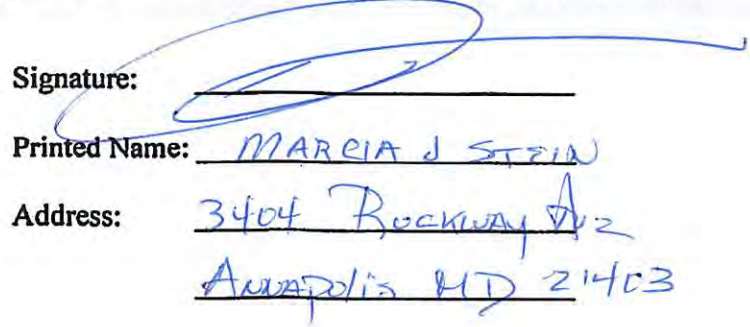 Signature:
Printed Name: MARCIA J STEIN
Address: 3404 Rockway Ave
Annapolis MD 21403